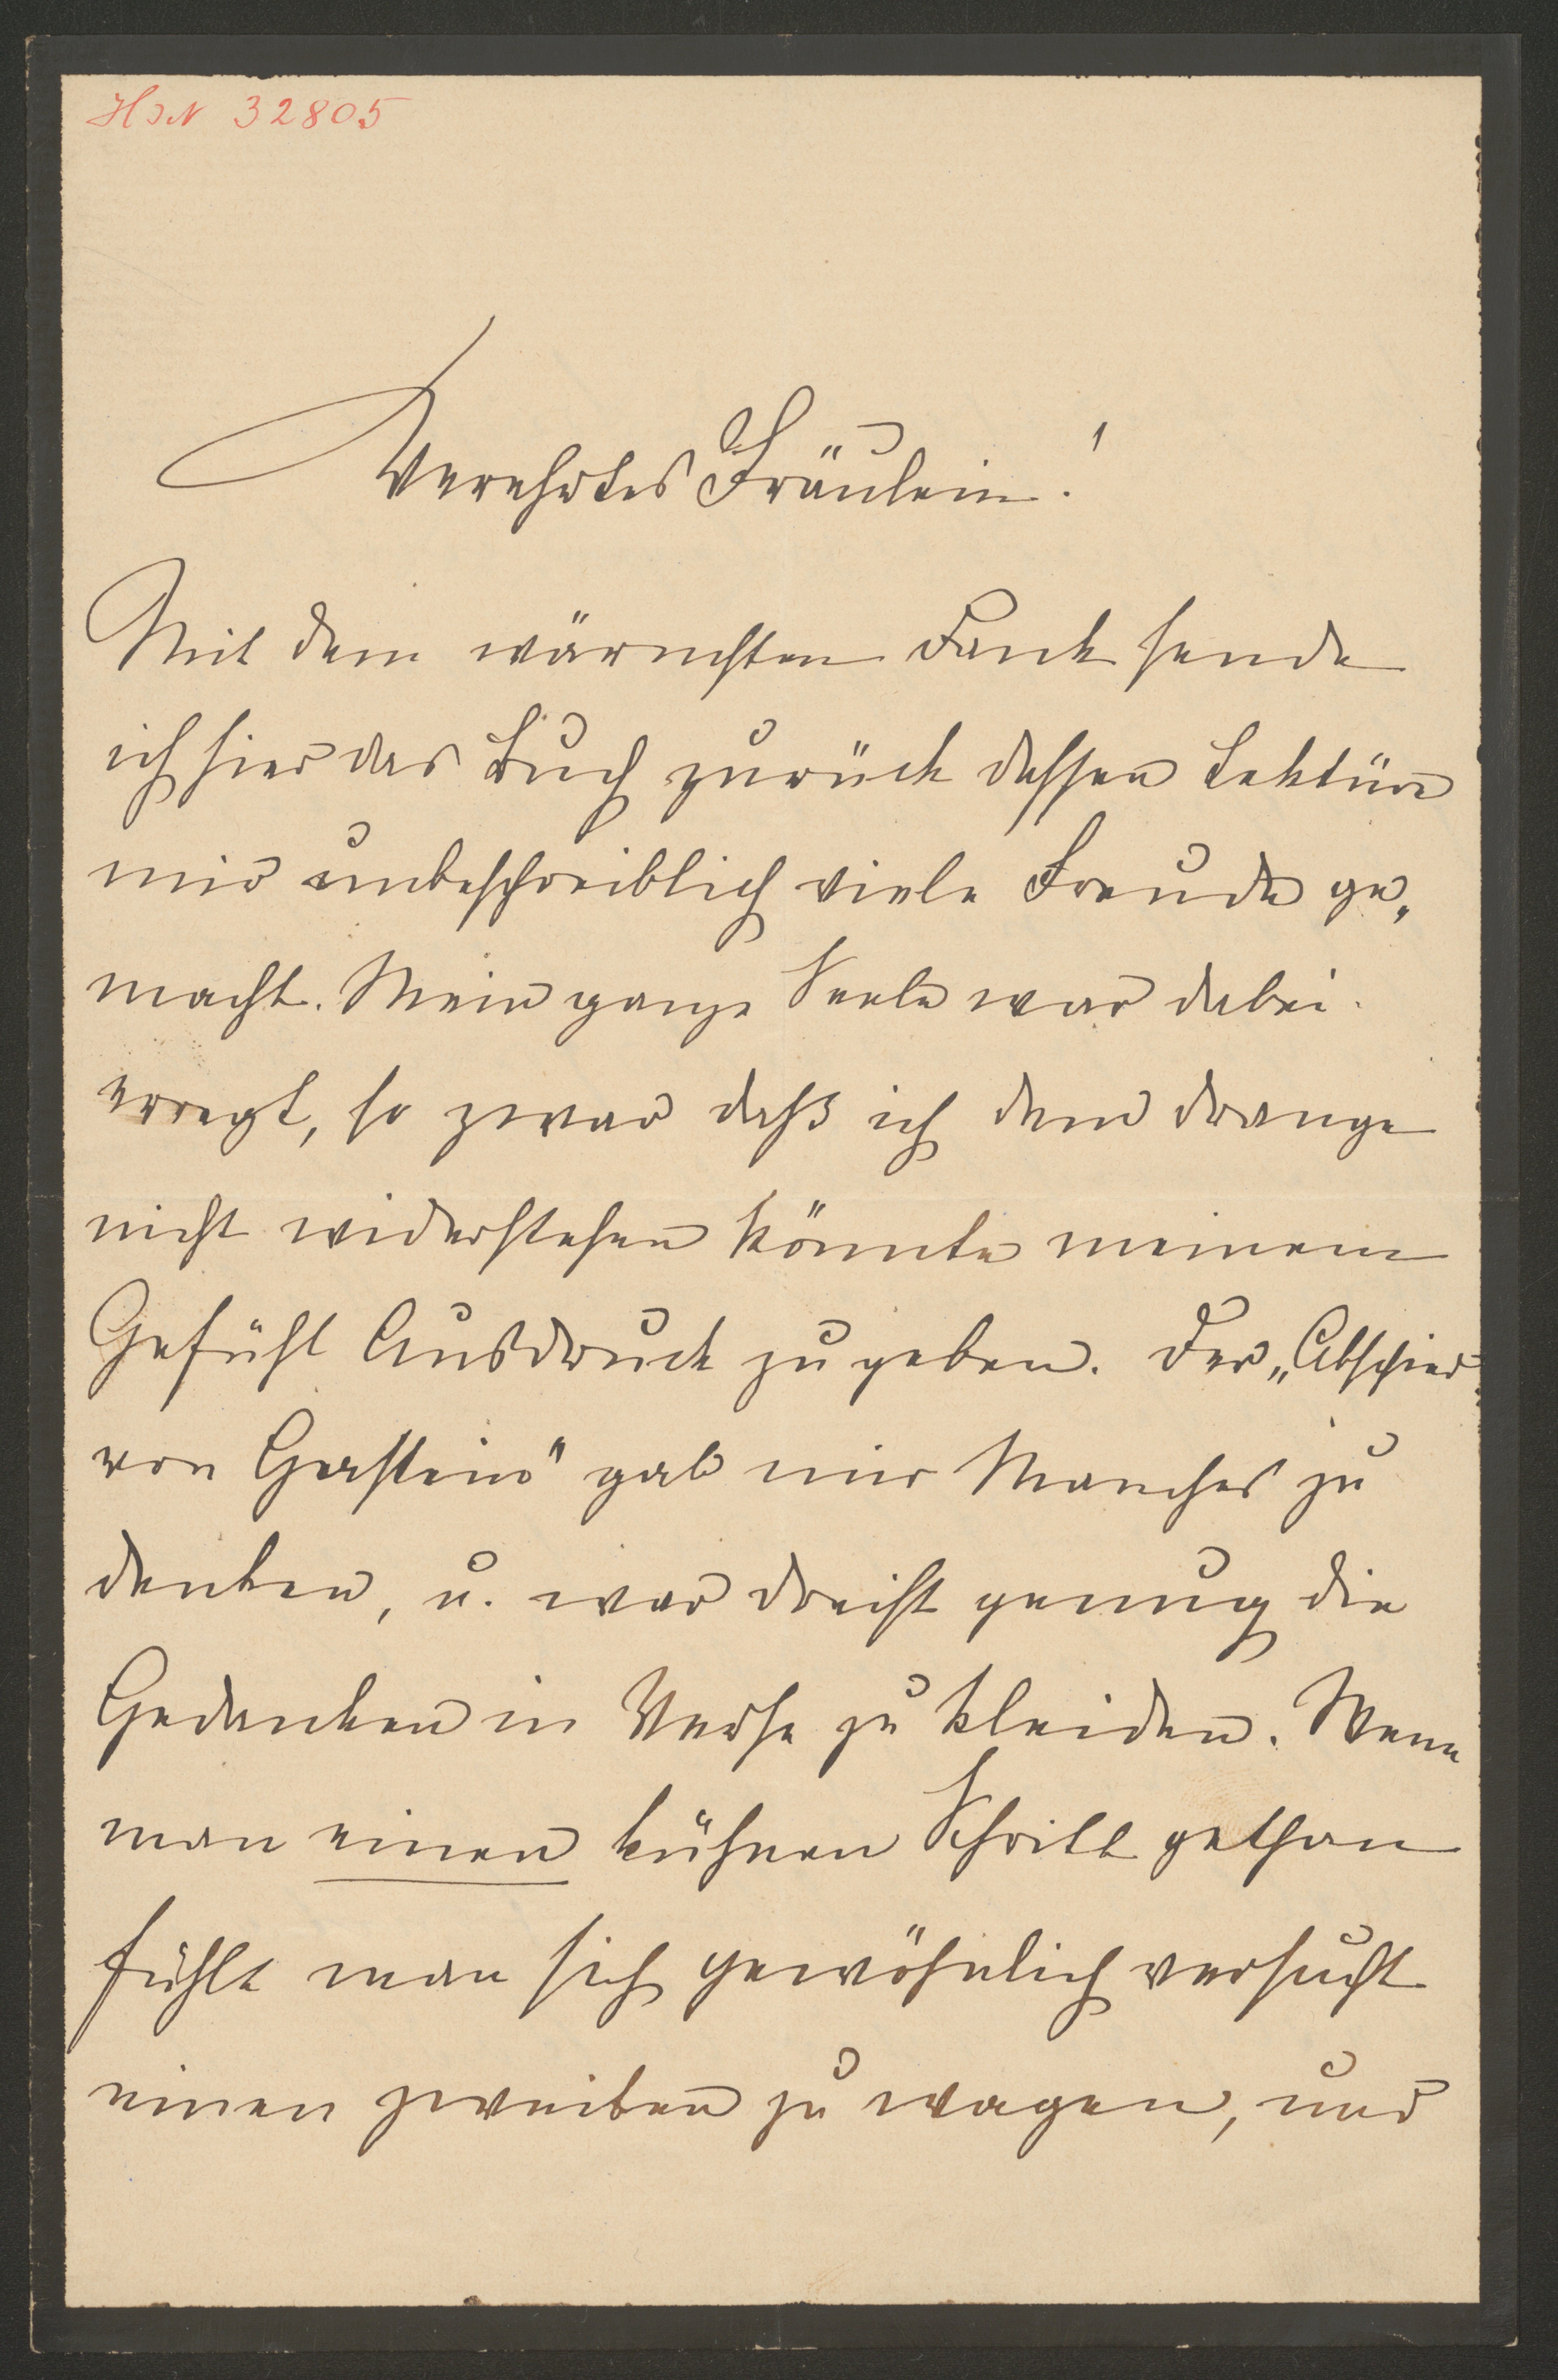 HIN 32805
Verehrtes Fräulein!
Mit dem wärmsten Dank sende
ich hier das Buch zurück dessen Lektüre
mir unbeschreiblich viele Freude ge„
macht. Meine ganze Seele war dabei
erregt, so zwar daß ich dem Drange
nicht widerstehen könnte meinem
Gefühl Ausdruck zu geben. Der „Abschied
von Gastein" gab mir Manches zu
denken, u. war dreist genug die
Gedanken in Verse zu kleiden. Wenn
man einen kühnen Schritt gethan
fühlt man sich gewöhnlich versucht
einen zweiten zu wagen, und